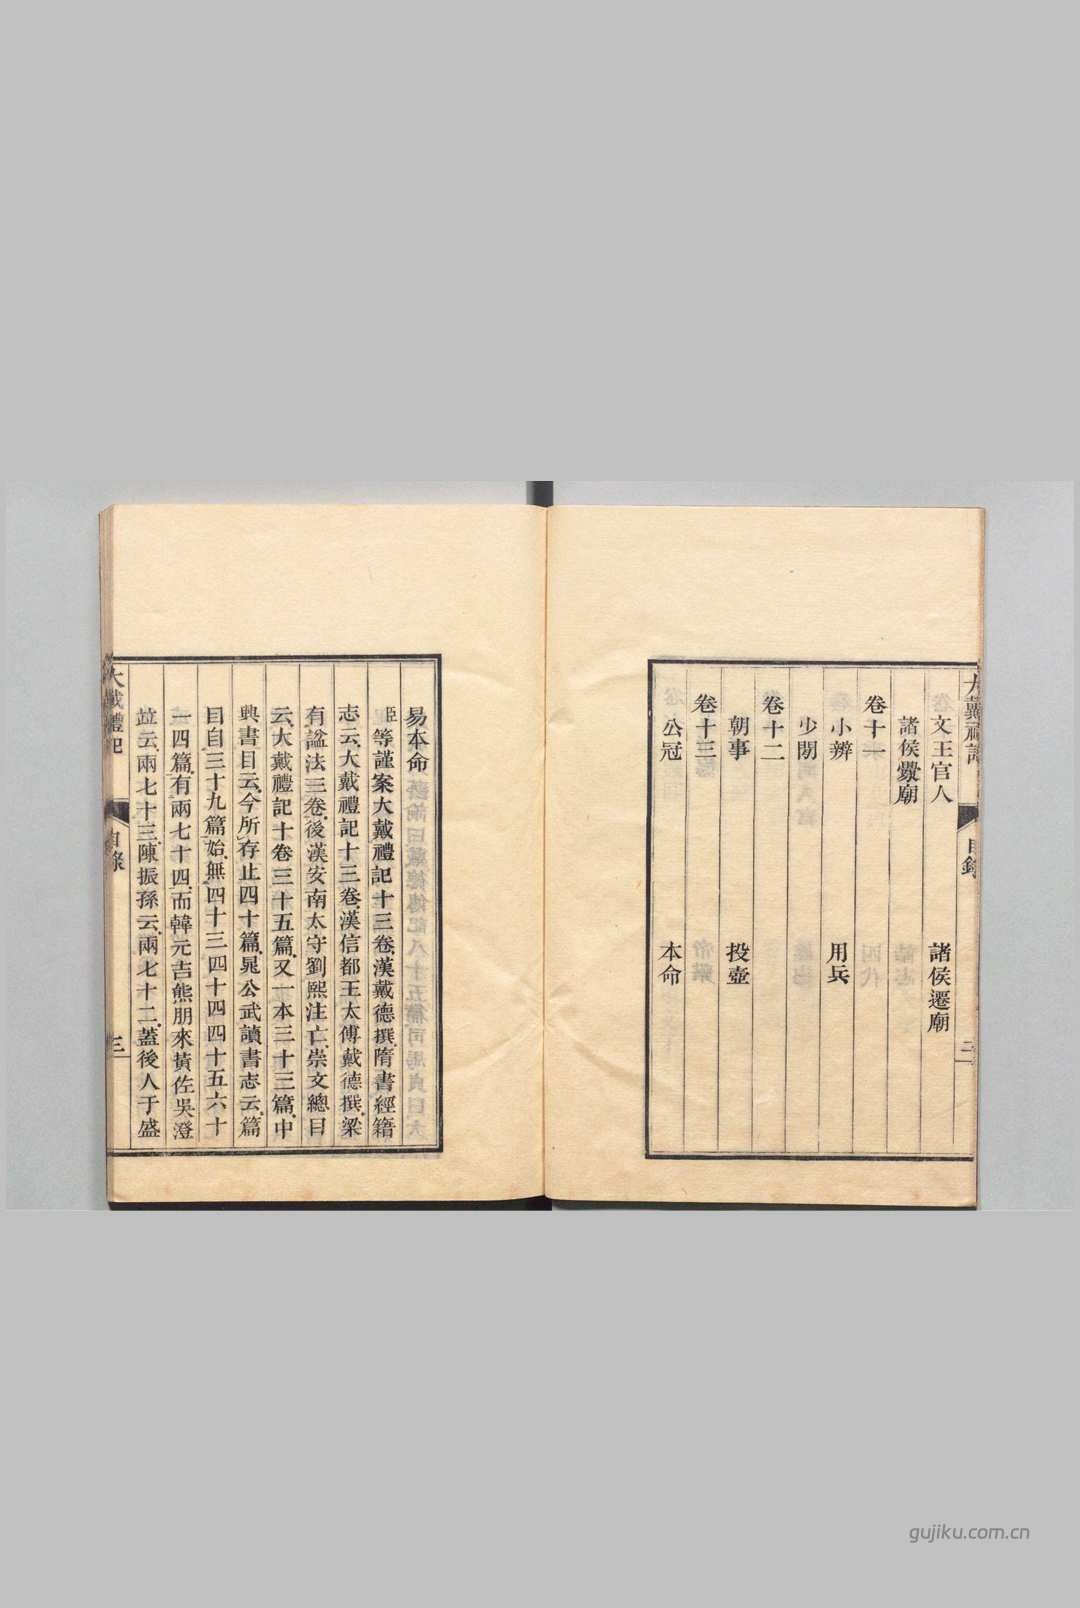 大戴禮記
目錄
文王官人 諸侯遷廟
諸侯釁廟
卷十一
小辨 用兵
少閒
卷十二
朝事 投壺
卷十三
公冠 本命
易本命
臣等謹案大戴禮記十三卷漢戴德撰隋書經籍
志云大戴禮記十三卷漢信都王太傅戴德撰梁
有諡法三卷後漢安南太守劉熙注亡崇文總目
云大戴禮記十卷三十五篇又一本三十三篇中
興書目云今所存止四十篇晁公武讀書志云篇
目自三十九篇始無四十三四十四四十五六十
一四篇有兩七十四而韓元吉熊朋來黃佐吳澄
竝云兩七十三陳振孫云兩七十二蓋後人于盛
大戴禮記
目錄
三
gujiku.com.cn